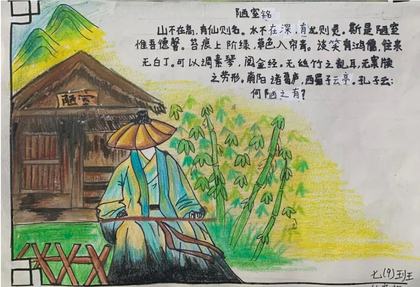 陋室铭
山不在高，有仙则名。水不在深，有龙则灵，斯是陋室
惟吾德馨。苔痕上阶绿，草色入帘青。谈笑有鸿儒，往来
无白丁。可以调素琴，阅金经。无丝竹之乱耳，无案牍
之劳形，南阳诸葛庐，西蜀子云亭。孔子云：
何陋之有？
陋室
七(9)班